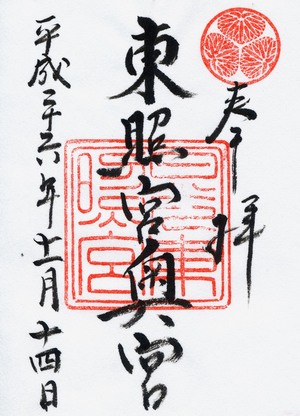 奉拝
東照宮奥宮
平成二十六年十一月十四日